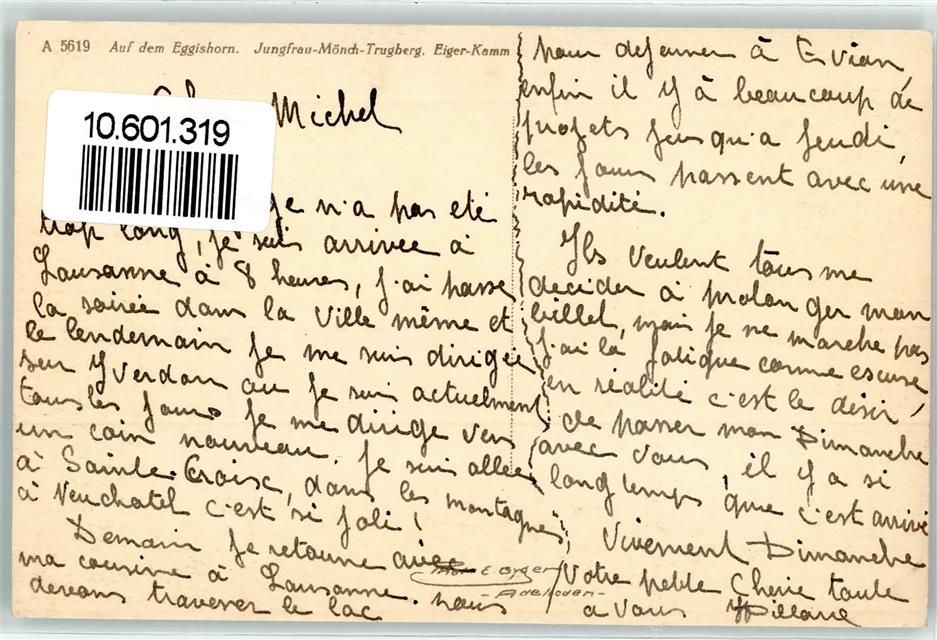 A 5619 Auf dem Eggishorn. Jungfrau-Mönch-Trugberg. Eiger-Kamm
Michel
10.601.319
je n'a pas eté
trop long, je suis arrivée à
Lausanne à 8 heures, j'ai passe
la soirée dans la ville même et
le lendemain je me suis dirigée
sur Yverdon ou je suis actuelment
tous les jours je me dirige vers
un coin nouveau. je suis allee
à Sainte-Croix, dans les montagnes,
à Neuchatel c'est si joli!
Demain je retourne avec
ma cousine à Lausanne. nous
devons traverser le lac
pour dejeuner à Evian,
enfin il y à beaucoup de
projets jusqu'a jeudi,
les jours passent avec une
rapidité.
Ils veulent tous me
decider à prolonger mon
billet, mais je ne marche pas
j'ai la fatigue comme escuse
en réalité c'est le désir,
de passer mon Dimanche
avec vous, il y a si
longtemps que c'est arrivé
Vivement Dimanche
Votre petite Cherie toute
a vous
E. Gyger
- Adelboden -